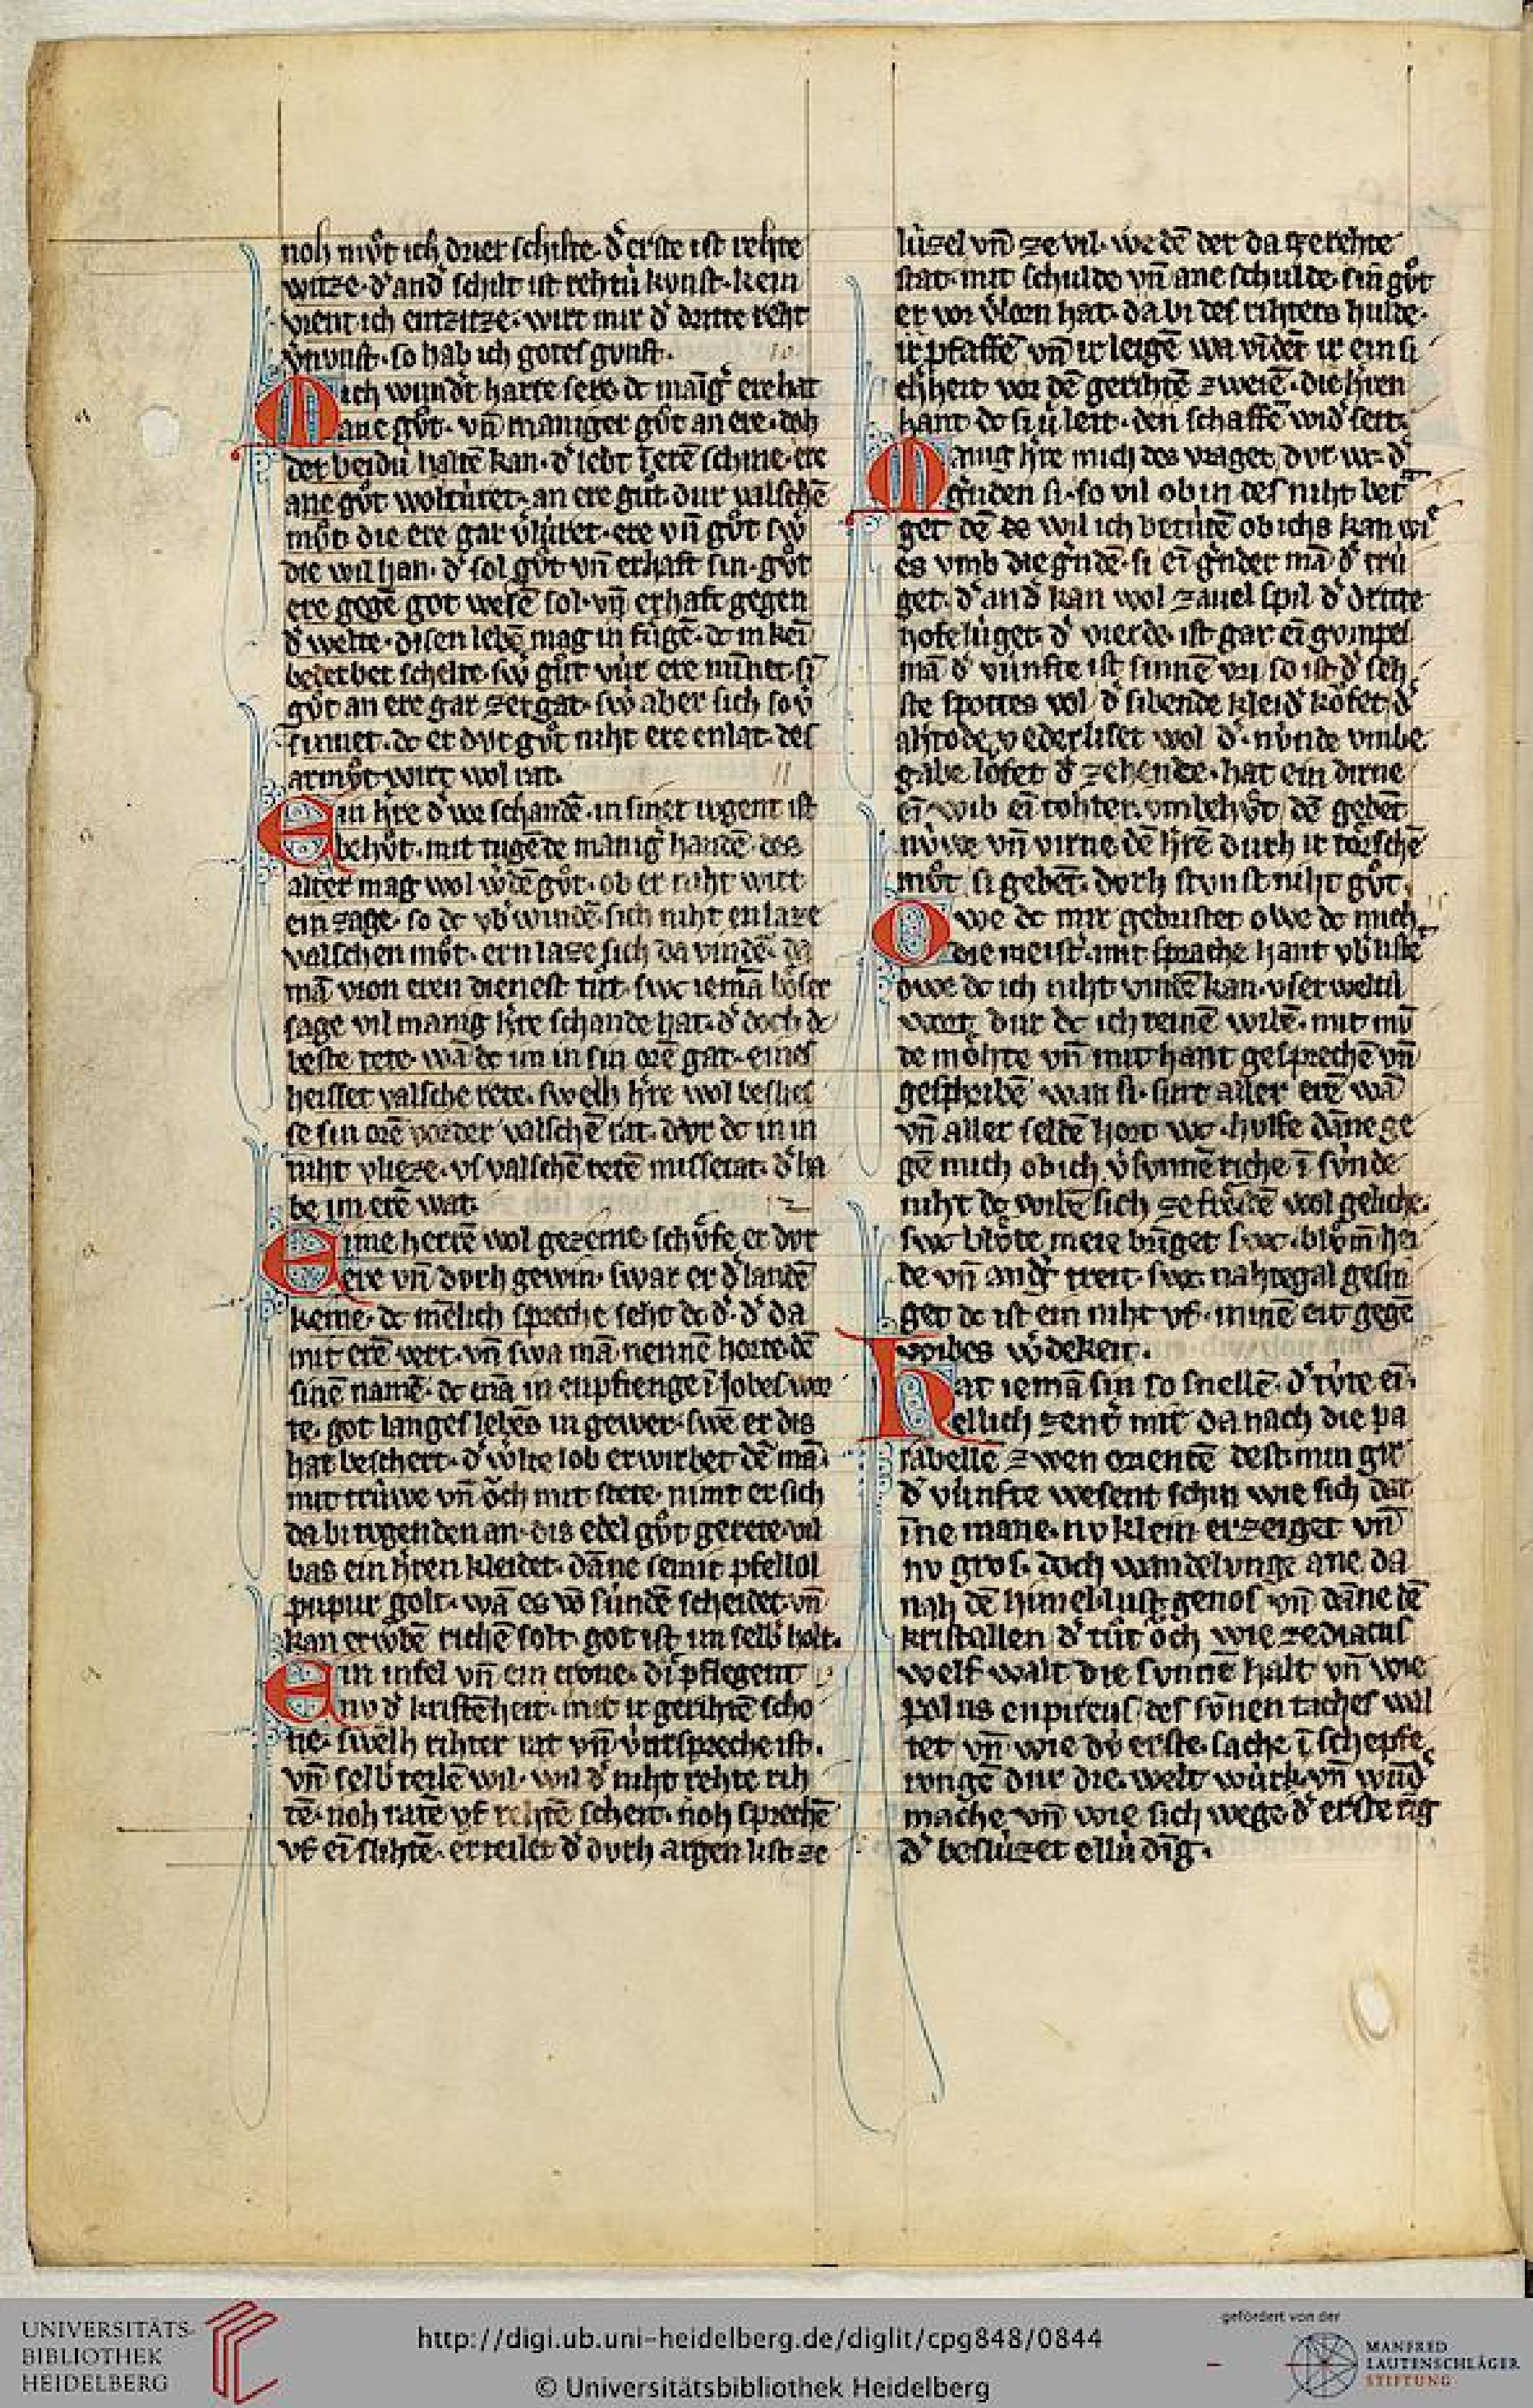 noh mv̊t ich drier schilte. d̓ erste ist rehte
witze. d̓ and̓ schilt ist rehtú kvnst. kein
vient ich entzitze. wirt mir d̓ dritte reht
v̓nvnft. so hab ich gotes gvnst.
Mich wund̓t harte sere. dc manig̓ ere hat
ane gv̊t. vn̄ maniger gv̊t an ere. doh
der beidú haltē kan. d̓ lebt ī erē schine. ere
ane gv̊t woltúret. an ere gůt dur valschē
mv̊t. die ere gar v̓lúret. ere vn̄ gv̊t sw̓
die wil han. d̓ sol gv̊t vn̄ erhaft sin. gv̊t
ere gegē got wesē sol. vn̄ erhaft gegen
d̓ welte. disen lebē mag in fůgē. dc in kei
bederber schelte. sw̓ gůt vúr ere minnet. sī
gv̊t an ere gar zergat. sw̓ aber sich so v̓
sinnet. dc er dvr gv̊t niht ere enlat. des
armv̊t wirt wol rat.
Ein h̓re d̓ vor schandē. in siner ivgent ist
behv̊t. mit tugēde manig̓ handē. des
alter mag wol w̓dē gv̊t. ob er niht wirt
ein zage. so dc vb̓windē. sich niht enlaze
valschen mv̊t. ern laze sich da vindē. da
mā vron eren dienest tůt. swc iemā bôser
sage vil manig h̓re schande hat. d̓ doch dc
beste tete. wā dc im in sin orē gat. eines
heisset valsche rete. swelh h̓re wol beslies
se sin orē vor der valschē rat. dvr dc in in
niht vlieze. vs valschē retē missetat. d̓ ha
be im erē wat.
Eime herrē wol gezeme. schv̊fe er dvr
ere vn̄ dvrh gewin. swar er d̓ landē
keme. dc mēlich spreche seht dc d̓. d̓ da
mit erē vert. vn̄ swa mā nennē horte. dē
sinē namē. dc mā in enpfienge ī lobes wor
te. got langes lebēs in gewer. swē er dis
hat beschert. d̓ w̓lte lob erwirbet dē mā.
mit trúwe vn̄ ôch mit stete. nimt er sich
da bi tvgenden an. dis edel gv̊t gerete. vil
bas ein h̓ren kleidet. dāne semit pfellol
purpur golt. wā es vō súndē scheidet. vn̄
kan erw̓bē richē solt. got ist im selb̓ holt.
Ein infel vn̄ ein crone. di pflegent
nv d̓ kristēheit. mit ir gerihtē scho
ne. swelh rihter rat vn̄ vúrspreche ist.
vn̄ selb̓ teilē wil. wil d̓ niht rehte rih
tē. noh ratē vf rehtē scheit. noh sprechē
vf ei slihtē. er teilet d̓ dvrh argen list ze
lúzel vn̄ ze vil. we dē der da ze rehte
stat. mit schulde vn̄ ane schulde. sin gv̊t
er vor v̓lorn hat. da bi des rihters hulde.
ir pfaffē vn̄ ir leigē wa vīdēt ir ein si
ch̓heit. vor dē gerihtē zweiē. die h̓ren
hant dc si ú leit. den schaffē wid̓ seit.
Manig h̓re mich des vraget. dvr wc d̓
gȓnden si. so vil ob in des niht bet̓
get dē de wil ich betútē ob ichs kan wi
es vmb die gȓndē. si ei gȓnder mā d̓ trú
get. d̓ and̓ kan wol zauel spil d̓ dritte
hofe lúget. d̓ vierde. ist gar ei gvmpel
mā d̓ vúnfte ist sinnē vri so ist d̓ seh
ste spottes vol d̓ sibende kleid̓ kôfet. d̓
ahtode vederliset wol d̓. núnde vmbe
gabe lôfet d̓ zehende. hat ein dirne
ei. wib ei tohter. vmbehv̊t dē gebēt
núwe vn̄ virne dē h̓rē durh ir tôrschē
mv̊t si gebēt. dvrh kvnst niht gv̊t.
Owe dc mir gebristet owe dc mich
die meist̓. mit sprache hant vb̓liste
owe dc ich niht vindē kan. vnser weltú
wort. dur dc ich reinē wibē. mit mv̄
de môhte vn̄ mit hant gesprechē vn̄
geschribē wan si. sint aller erē wā
vn̄ aller seldē hort. wc. hvlfe dāne ge
gē mich ob ich v̓svnnē riche ī sv̓nde
niht dc wibē sich ze frôidē wol geliche.
swc blv̊te meie bringet swc. blv̊m̄ hei
de vn̄ ang̓ treit. swc nahtegal gesin
get dc ist ein niht vf. minē eit gegē
wibes w̓dekeit.
Hat iemā sin so snellē. d̓ tv̓te ei.
ellich zent̓ mit da nach die pa
rabelle zwen orientē dest. min gir
d̓ vúnfte wesent schin wie sich der
īne mane. nv klein erzeiget vn̄
nv gros. doch wandelvnge ane. da
nah dē himel. lust. genos vn̄ dāne dē
kristallen d̓ tůt ôch wie zediacus
welf walt die svnnē halt vn̄ wie
polus enpireus des svnen taches wal
tet vn̄ wie dv̓ erste. sache ī schepfe
tvngē dur die. welt wúrk. vn̄ wūd̓
mache vn̄ wie sich wege. d̓ erste ring
d̓ beslúzet ellú ding.
UNIVERSITÄTS-
BIBLIOTHEK
HEIDELBERG
http://digi.ub.uni-heidelberg.de/diglit/cpg848/0844
© Universitätsbibliothek Heidelberg
gefördert von der
MANFRED
LAUTENSCHLÄGER
STIFTUNG